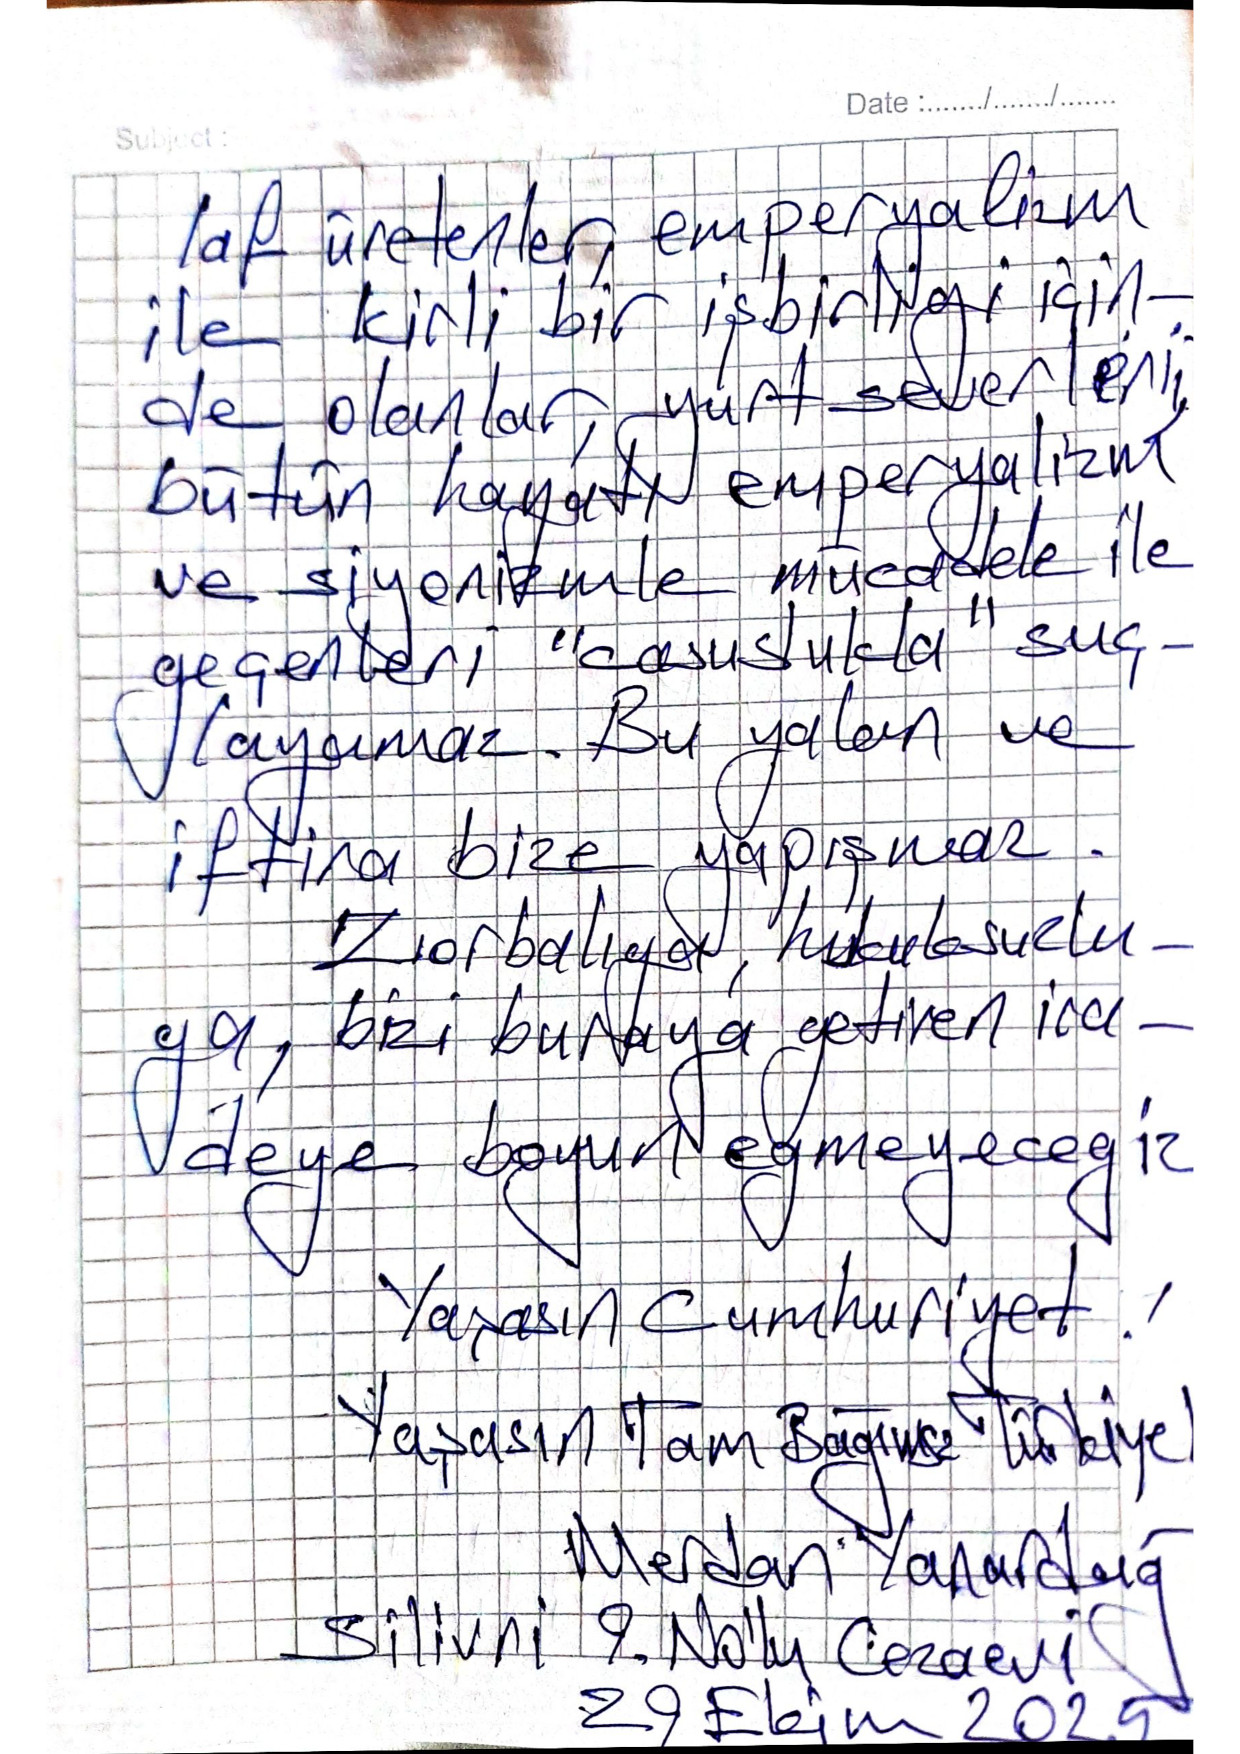 Date :......./......./.......
Subject :
laf üretenler, emperyalizm
ile kirli bir işbirliği için-
de olanlar, yurtseverleri,
bütün hayatı emperyalizm
ve siyonizmle mücadele ile
geçenleri "casuslukla" suç-
layamaz. Bu yalan ve
iftira bize yapışmaz.
Zorbalığa, hukuksuzlu-
ğa, bizi buraya getiren ira-
deye boyun eğmeyeceğiz
Yaşasın Cumhuriyet!
Yaşasın Tam Bağımsız Türkiye!
Merdan Yanardağ
Silivri 9. No'lu Cezaevi
29 Ekim 2025